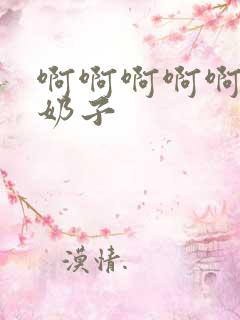 啊啊啊啊啊
奶子
漠情.